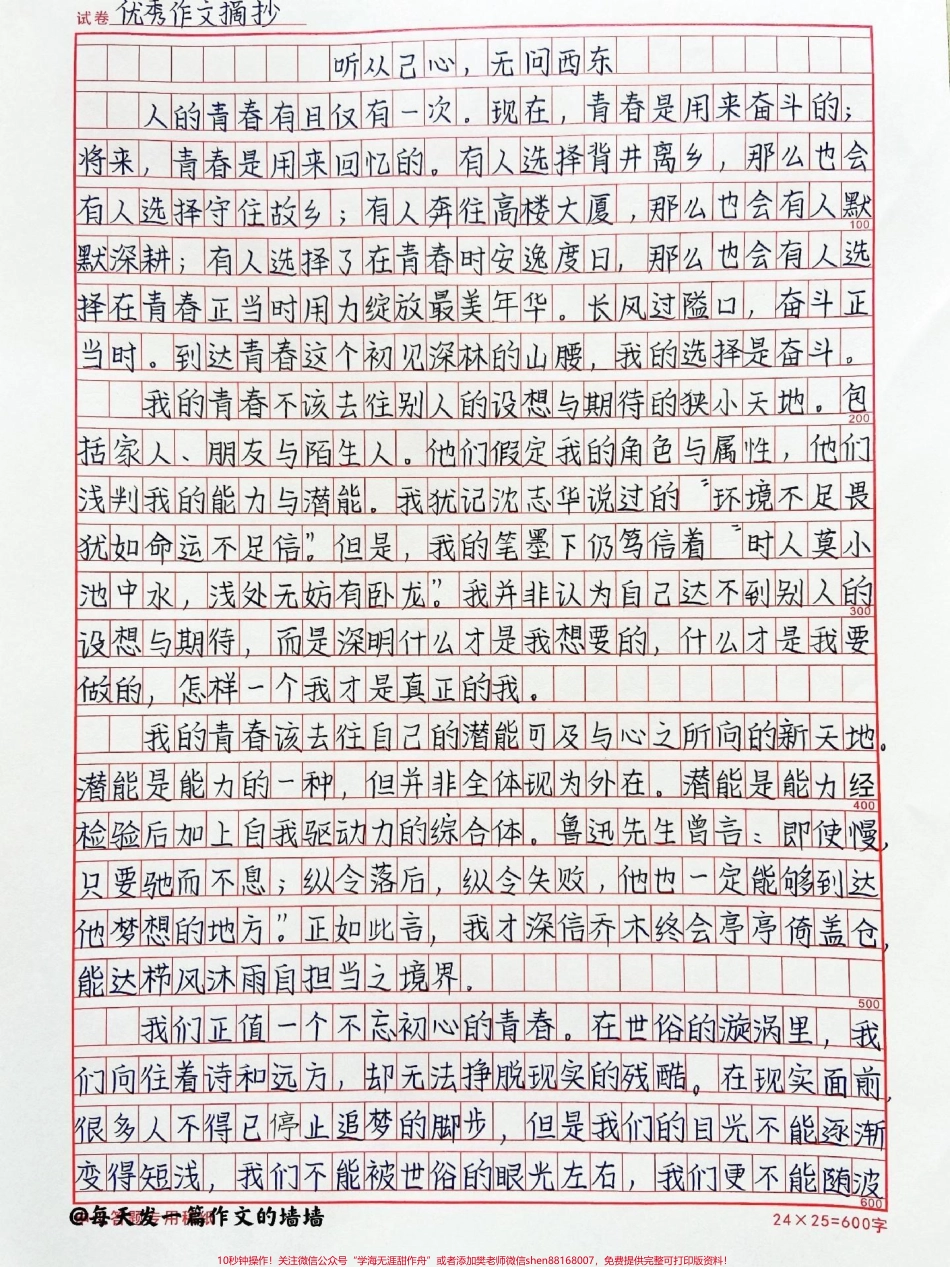 试卷 优秀作文摘抄
听从己心，无问西东
人的青春有且仅有一次。现在，青春是用来奋斗的；
将来，青春是用来回忆的。有人选择背井离乡，那么也会
有人选择守住故乡；有人奔往高楼大厦，那么也会有人默
100
默深耕；有人选择了在青春时安逸度日，那么也会有人选
择在青春正当时用力绽放最美年华。长风过隘口，奋斗正
当时。到达青春这个初见深林的山腰，我的选择是奋斗。
我的青春不该去往别人的设想与期待的狭小天地。包
200
括家人、朋友与陌生人。他们假定我的角色与属性，他们
浅判我的能力与潜能。我犹记沈志华说过的“环境不足畏
犹如命运不足信”。但是，我的笔墨下仍笃信着“时人莫小
池中水，浅处无妨有卧龙”。我并非认为自己达不到别人的
300
设想与期待，而是深明什么才是我想要的，什么才是我要
做的，怎样一个我才是真正的我。
我的青春该去往自己的潜能可及与心之所向的新天地。
潜能是能力的一种，但并非全体现为外在。潜能是能力经
400
检验后加上自我驱动力的综合体。鲁迅先生曾言：即使慢，
只要驰而不息；纵令落后，纵令失败，他也一定能够到达
他梦想的地方”。正如此言，我才深信乔木终会亭亭倚盖仓，
能达栉风沐雨自担当之境界.
500
我们正值一个不忘初心的青春。在世俗的漩涡里，我
们向往着诗和远方，却无法挣脱现实的残酷。在现实面前，
很多人不得已停止追梦的脚步，但是我们的目光不能逐渐
变得短浅，我们不能被世俗的眼光左右，我们更不能随波
600
@每天发一篇作文的墙墙
24×25=600字
10秒钟操作！关注微信公众号“学海无涯甜作舟”或者添加樊老师微信shen88168007，免费提供完整可打印版资料！